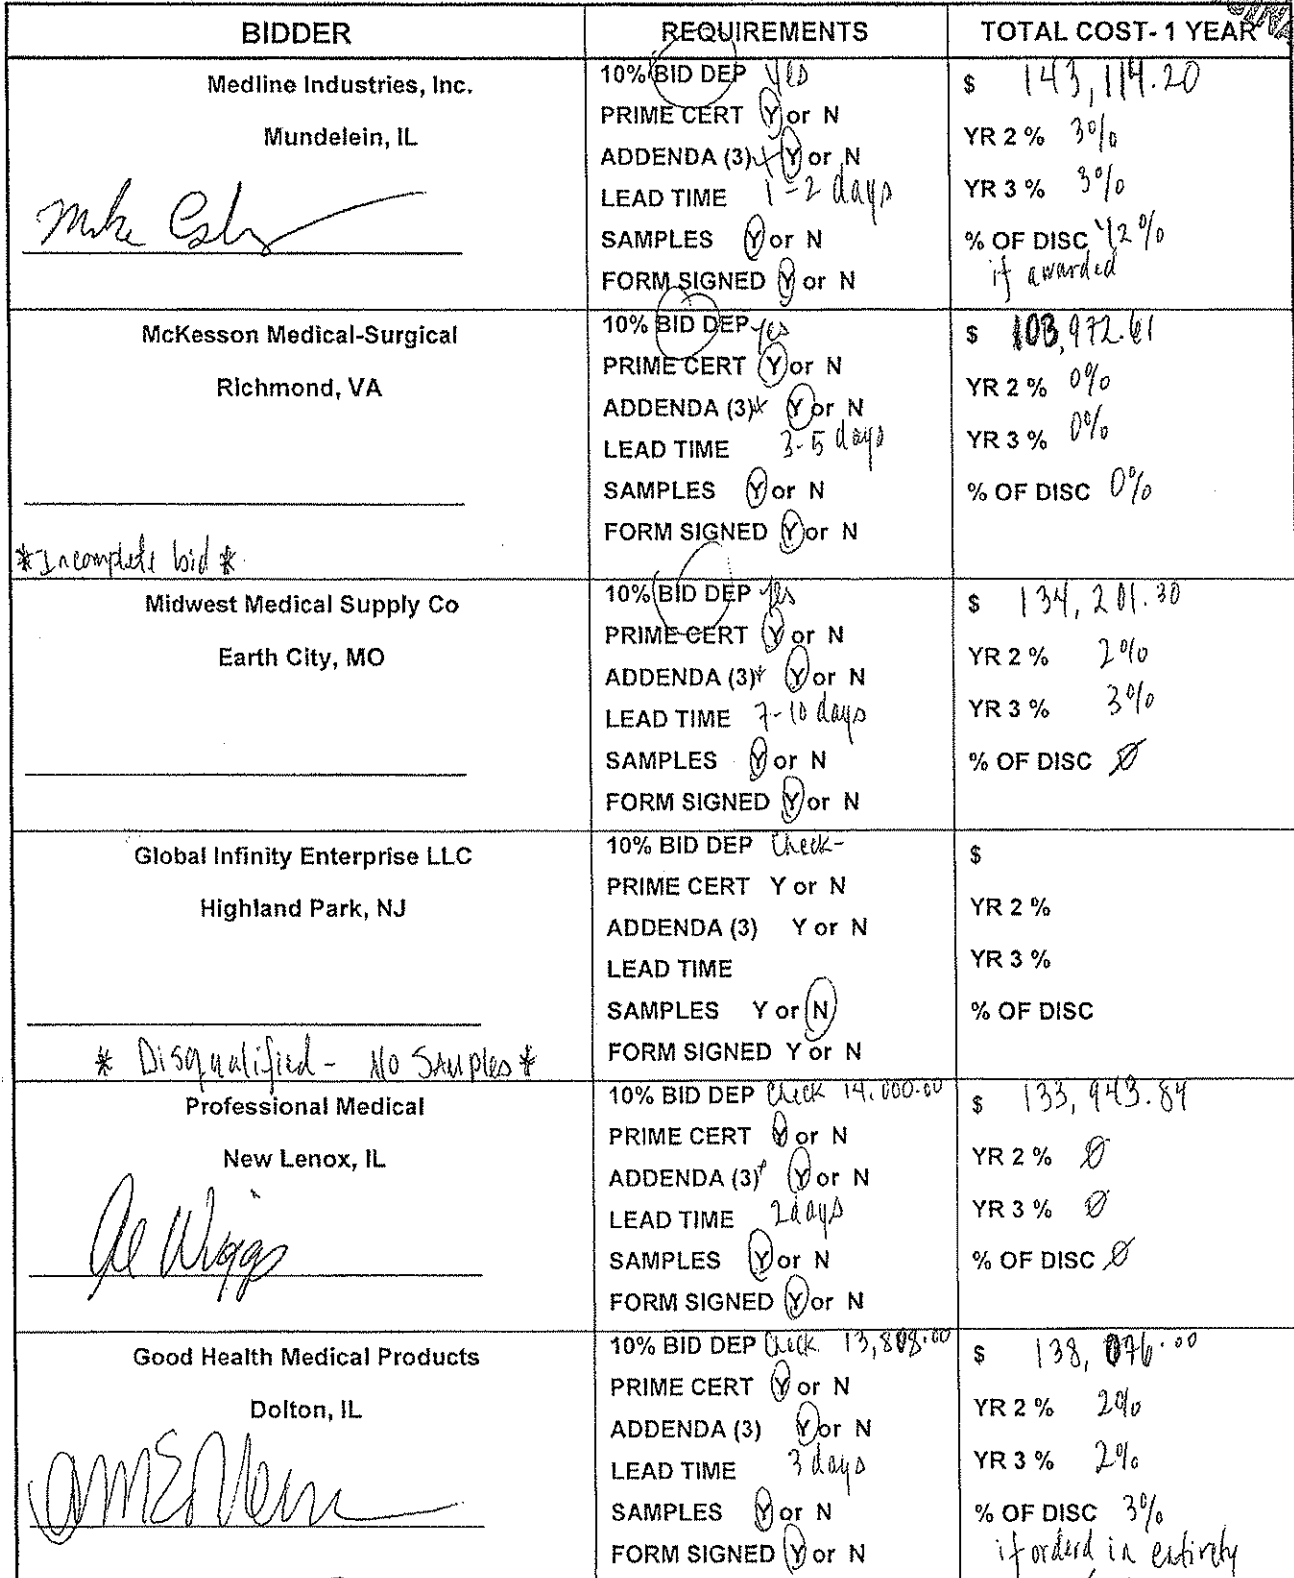 BIDDER REQUIREMENTS TOTAL COST- 1 YEAR
Medline Industries, Inc.
Mundelein, IL
10% BID DEP yes
PRIME CERT Y or N
ADDENDA (3) Y or N
LEAD TIME 1-2 days
SAMPLES Y or N
FORM SIGNED Y or N
$ 143,114.20
YR 2 % 3%
YR 3 % 3%
% OF DISC 1/2%
if awarded
McKesson Medical-Surgical
Richmond, VA
*Incomplete bid*
10% BID DEP yes
PRIME CERT Y or N
ADDENDA (3)* Y or N
LEAD TIME 3-5 days
SAMPLES Y or N
FORM SIGNED Y or N
$ 103,972.61
YR 2 % 0%
YR 3 % 0%
% OF DISC 0%
Midwest Medical Supply Co
Earth City, MO
10% BID DEP yes
PRIME CERT Y or N
ADDENDA (3)* Y or N
LEAD TIME 7-10 days
SAMPLES Y or N
FORM SIGNED Y or N
$ 134,201.30
YR 2 % 2%
YR 3 % 3%
% OF DISC Ø
Global Infinity Enterprise LLC
Highland Park, NJ
* Disqualified - No Samples *
10% BID DEP Check-
PRIME CERT Y or N
ADDENDA (3) Y or N
LEAD TIME
SAMPLES Y or N
FORM SIGNED Y or N
$
YR 2 %
YR 3 %
% OF DISC
Professional Medical
New Lenox, IL
Al Wiggs
10% BID DEP Check 14,000.00
PRIME CERT Y or N
ADDENDA (3)* Y or N
LEAD TIME 2 days
SAMPLES Y or N
FORM SIGNED Y or N
$ 133,943.84
YR 2 % Ø
YR 3 % Ø
% OF DISC Ø
Good Health Medical Products
Dolton, IL
10% BID DEP Check 13,808.00
PRIME CERT Y or N
ADDENDA (3) Y or N
LEAD TIME 3 days
SAMPLES Y or N
FORM SIGNED Y or N
$ 138,076.00
YR 2 % 2%
YR 3 % 2%
% OF DISC 3%
if orderd in entirety